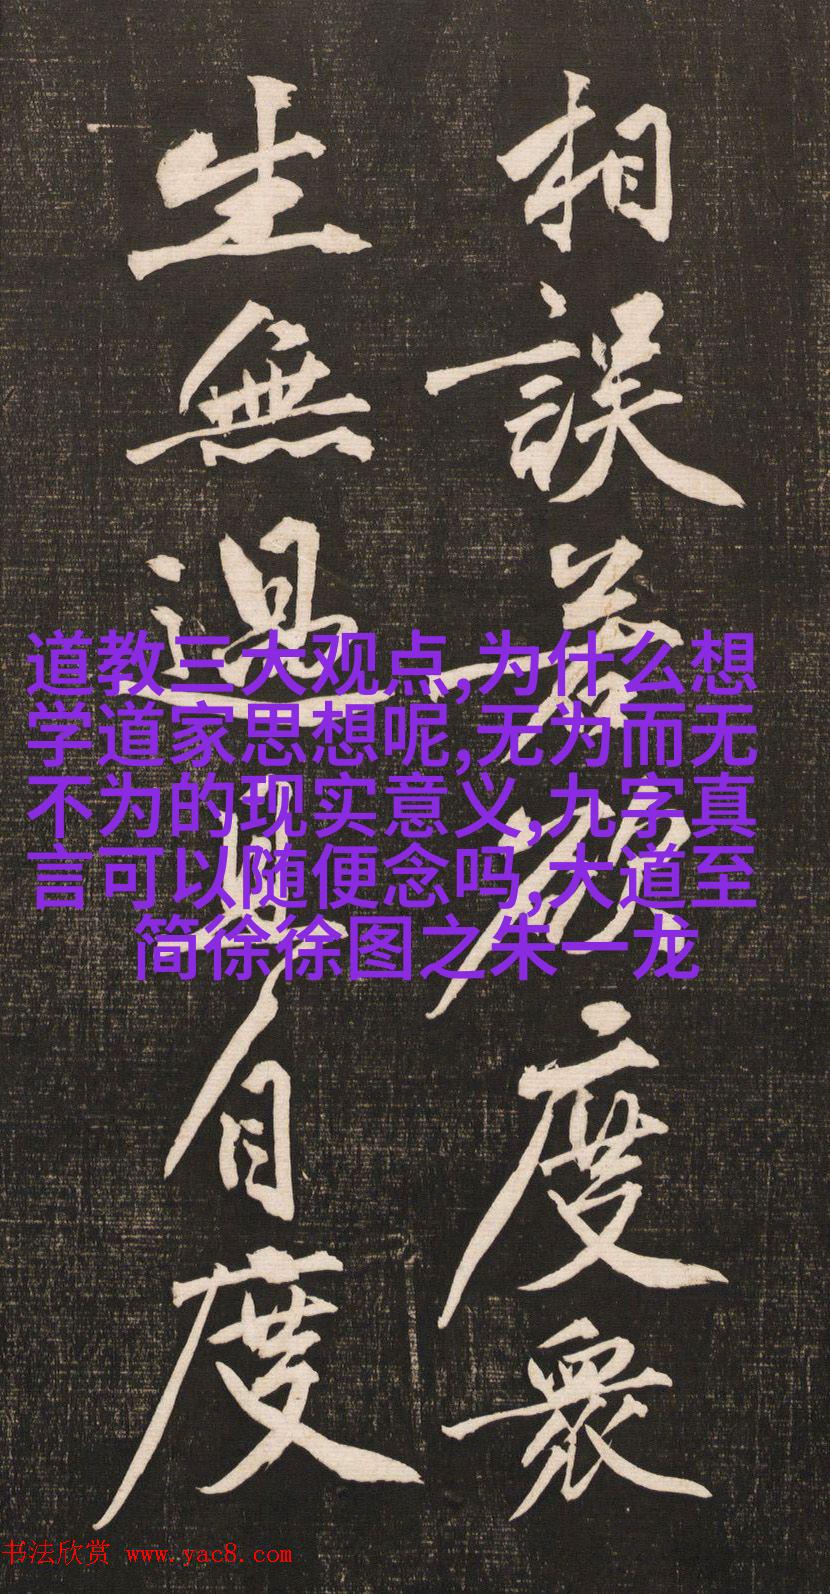 相誤若欲度衆
生無過且自度
道教三大观点,为什么想
学道家思想呢,无为而无
不为的现实意义,九字真
言可以随便念吗,大道至
简徐徐图之朱一龙
书法欣赏 www.yac8.com